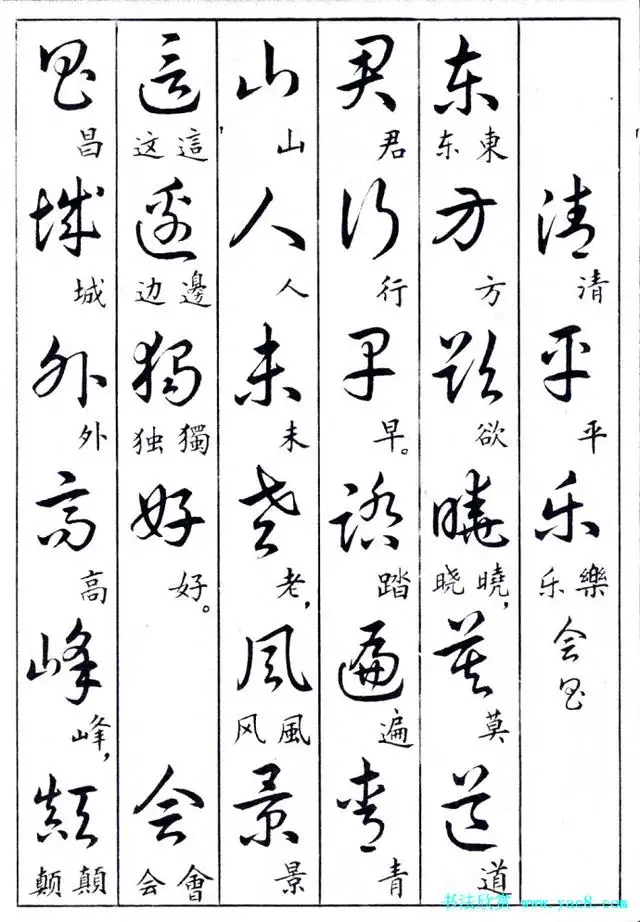 清 清 平 平 乐 乐樂 会昌
东 东東 方 方 欲 欲 曉 晓曉, 莫 莫 道 道
君 君 行 行 早 早。 踏 踏 遍 遍 青 青
山 山 人 人 未 未 老 老, 风 风風 景 景
這 这這 邊 边邊 獨 独獨 好 好。 会 会會
昌 昌 城 城 外 外 高 高 峰 峰, 颠 颠顛
书法欣赏 www.yac8.com